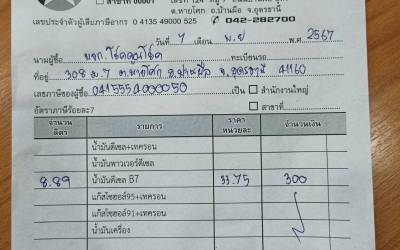 สาขาที่ 00001
ต.หายโศก อ.บ้านผือ จ.อุดรธานี
เลขประจำตัวผู้เสียภาษีอากร 0 4135 49000 525 042-282700
วันที่ 7 เดือน พ.ย พ.ศ. 2567
นามผู้ซื้อ หจก. โชคภูมิโชค ทะเบียนรถ
ที่อยู่ 308 ม.7 ต.หายโศก อ.บ้านผือ จ.อุดรธานี 41160
เลขภาษีของผู้ซื้อ 0415554000050 เป็น สำนักงานใหญ่
อัตราภาษีร้อยละ7 สาขาที่
จำนวนลิตร รายการ ราคาหน่วยละ จำนวนเงิน
น้ำมันดีเซล+เทครอน
น้ำมันพาวเวอร์ดีเซล
8.89 น้ำมันดีเซล B7 33.75 300
แก๊สโซฮอล์95+เทครอน
แก๊สโซฮอล์91+เทครอน
น้ำมันเครื่อง